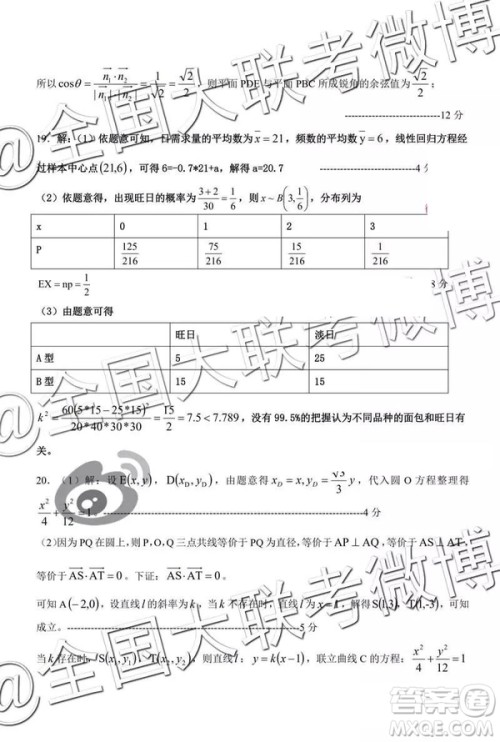 所以cosθ = (n₁·n₂)/(|n₁|·|n₂|) = 1/√2 = √2/2，则平面 PDE 与平面 PBC 所成锐角的余弦值为 √2/2；
12 分
19．解：（1）依题意可知，日需求量的平均数为 x̄=21，频数的平均数 ȳ=6，线性回归方程经
过样本中心点(21,6)，可得 6=-0.7*21+a，解得 a=20.7 4 分
（2）依题意得，出现旺日的概率为 (3+2)/30 = 1/6，则 x ~ B(3, 1/6)，分布列为
x 0 1 2 3
P 125/216 75/216 15/216 1/216
EX = np = 1/2 8 分
（3）由题意可得
旺日 淡日
A 型 5 25
B 型 15 15
k² = 60(5*15-25*15)²/(20*40*30*30) = 15/2 = 7.5 < 7.789，没有 99.5%的把握认为不同品种的面包和旺日有
关。
20．（1）解：设 E(x, y)，D(x_D, y_D)，由题意得 x_D = x, y_D = √3/3 y，代入圆 O 方程整理得
x²/4 + y²/12 = 1。 4 分
（2）因为 PQ 在圆上，则 P，O，Q 三点共线等价于 PQ 为直径，等价于 AP⊥AQ，等价于 AS⊥AT，
等价于 AS·AT = 0。下证：AS·AT = 0。
可知 A(−2,0)，设直线 l 的斜率为 k，当 k 不存在时，直线 l 为 x=1，解得 S(1,3)，T(1,-3)，可知
成立。 5 分
当 k 存在时，设 S(x₁, y₁)，T(x₂, y₂)，则直线 l：y = k(x−1)，联立曲线 C 的方程：x²/4 + y²/12 = 1
@全国大联考微博
@全国大联考微博
@全国大联考微博
答案圈
MXQE.COM